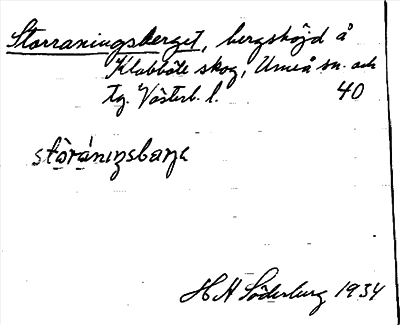 Storraningsberget, bergshöjd å
Klabböle skog, Umeå sn. och
tg. Västerb. l. 40
stòrániŋsbarje
H H Söderberg 1934